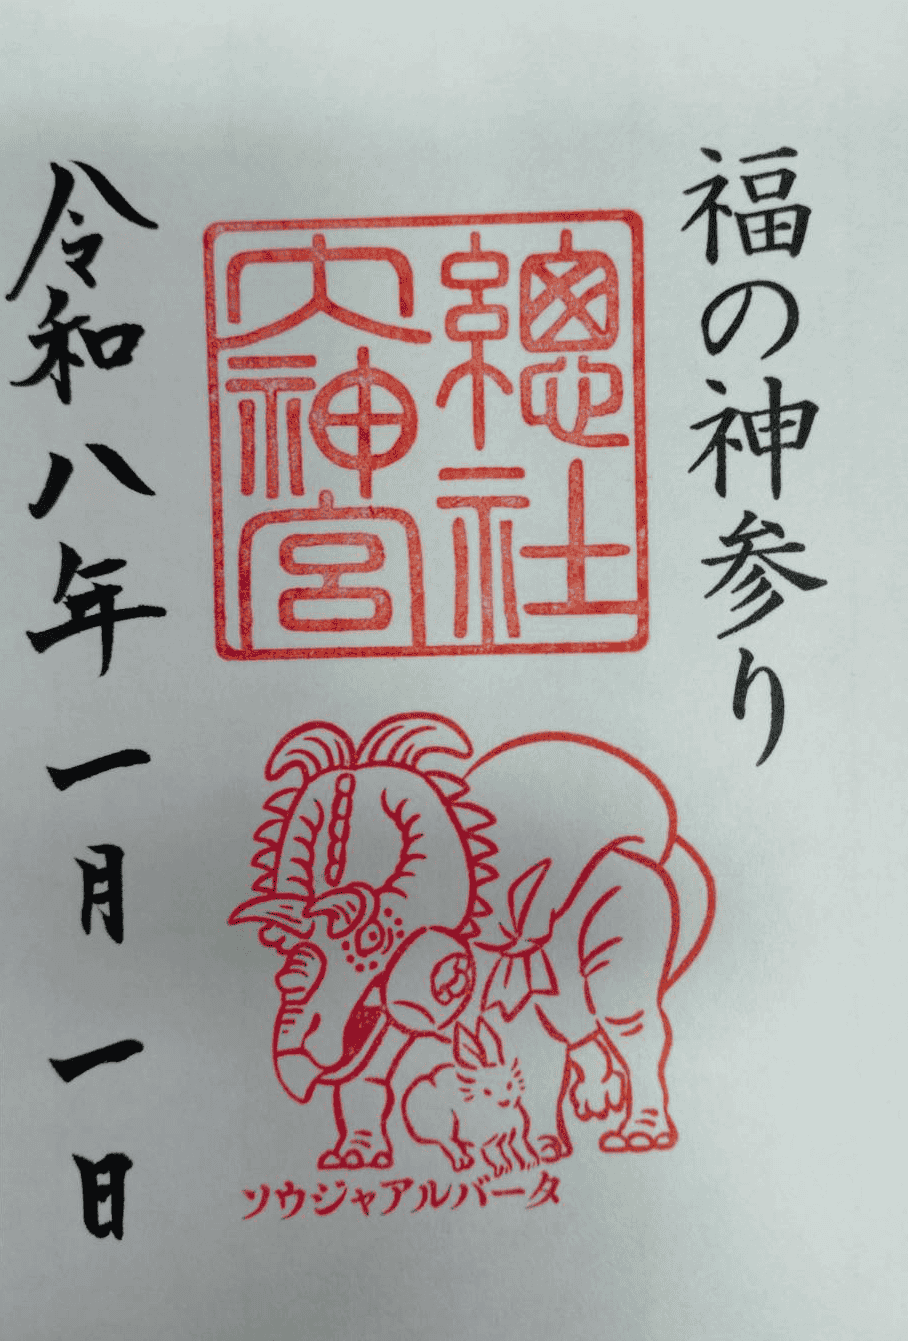 福の神参り
總社
大神宮
令和八年一月一日
ソウジャアルバータ